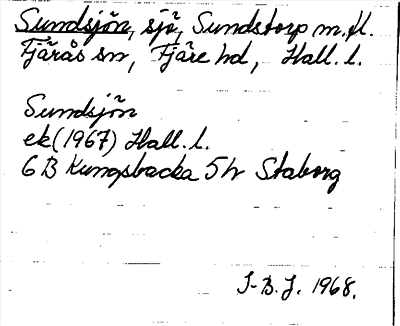 Sundsjön, sjö, Sundstorp m.fl.
Fjärås sn, Fjäre hd, Hall. l.
Sundsjön
ek (1967) Hall. l.
6 B Kungsbacka 5 h Staborg
I-B.J. 1968.